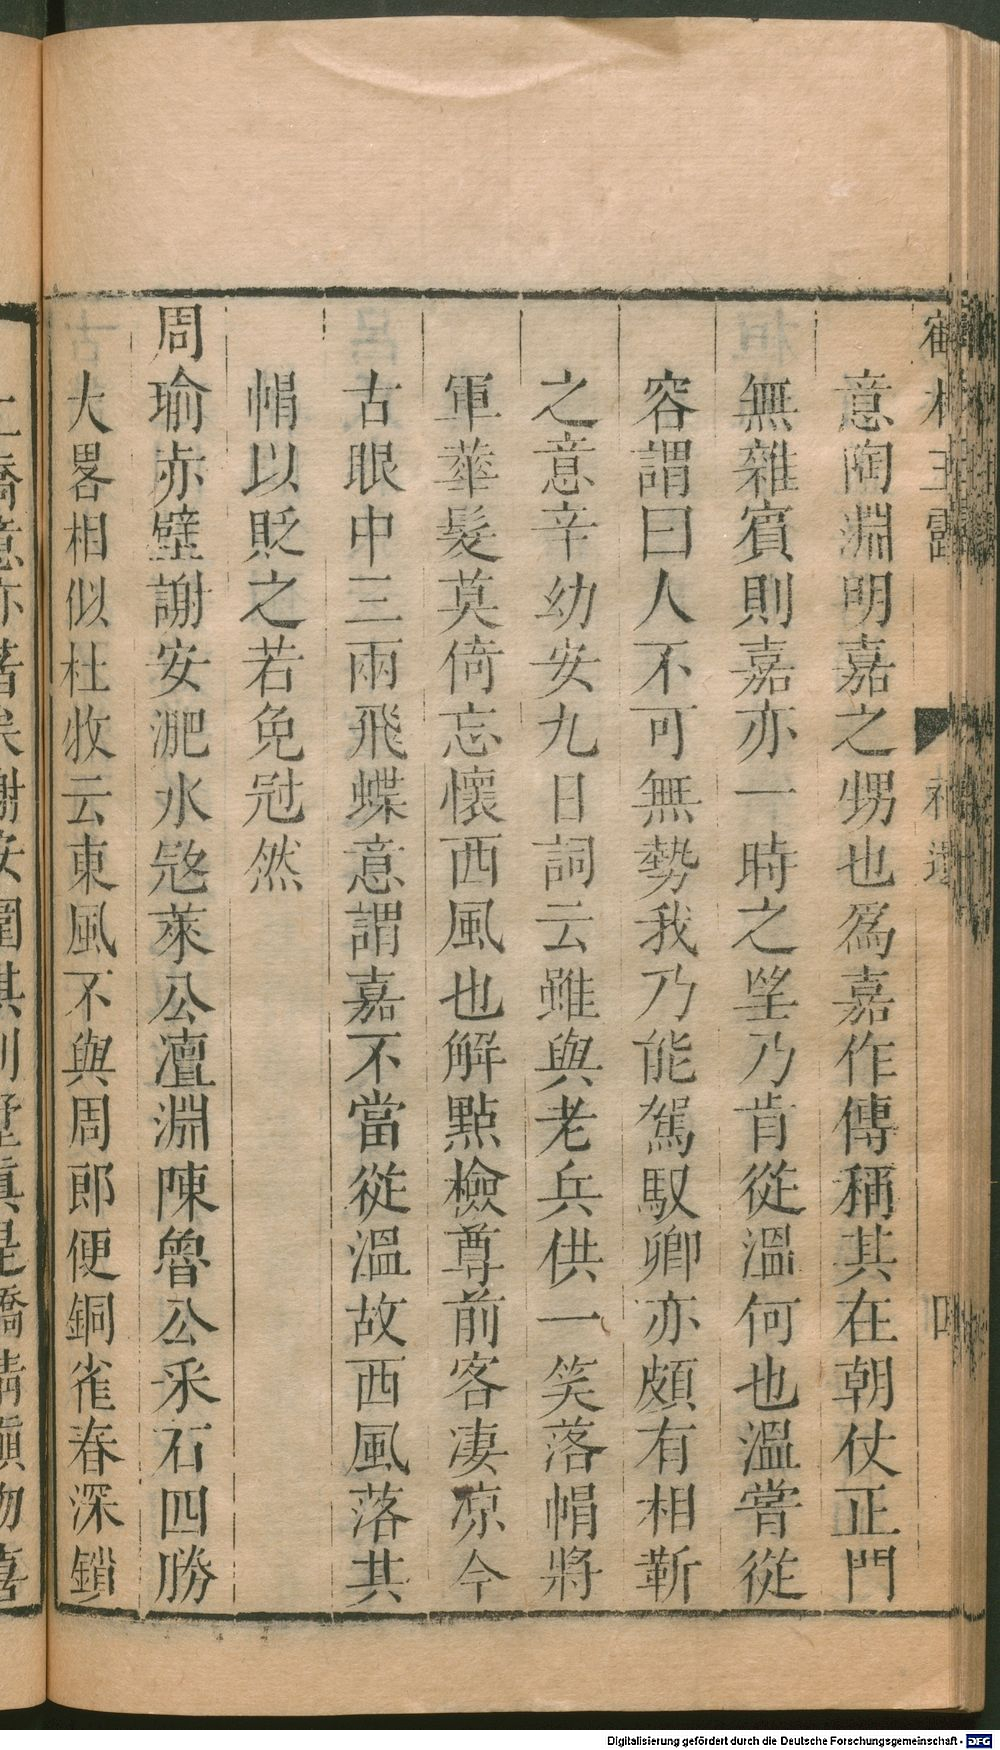 意陶淵明嘉之甥也爲嘉作傳稱其在朝仗正門
無雜賓則嘉亦一時之望乃肯從溫何也溫嘗從
容謂曰人不可無勢我乃能駕馭卿亦頗有相靳
之意辛幼安九日詞云雖與老兵供一笑落帽將
軍華髮莫倚忘懷西風也解點檢尊前客凄凉今
古眼中三兩飛蝶意謂嘉不當從溫故西風落其
帽以貶之若免冠然
周瑜赤壁謝安淝水㓂萊公澶淵陳魯公采石四勝
大畧相似杜牧云東風不與周郎便銅雀春深鎖
Digitalisierung gefördert durch die Deutsche Forschungsgemeinschaft - DFG